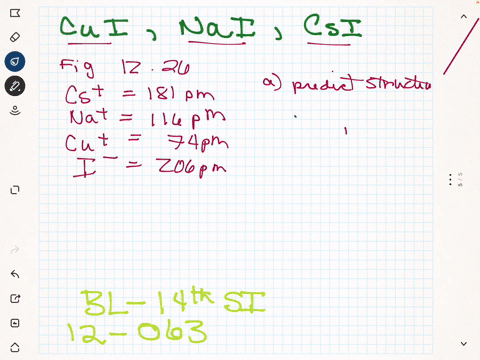 CuI, NaI, CsI
Fig 12.26
a) predict structure
Cs+ = 181 pm
Na+ = 116 pm
Cu+ = 74pm
I- = 206pm
BL-14th SI
12-063